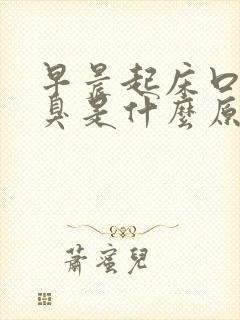 早晨起床口
臭是什麼原
蕭蜜兒